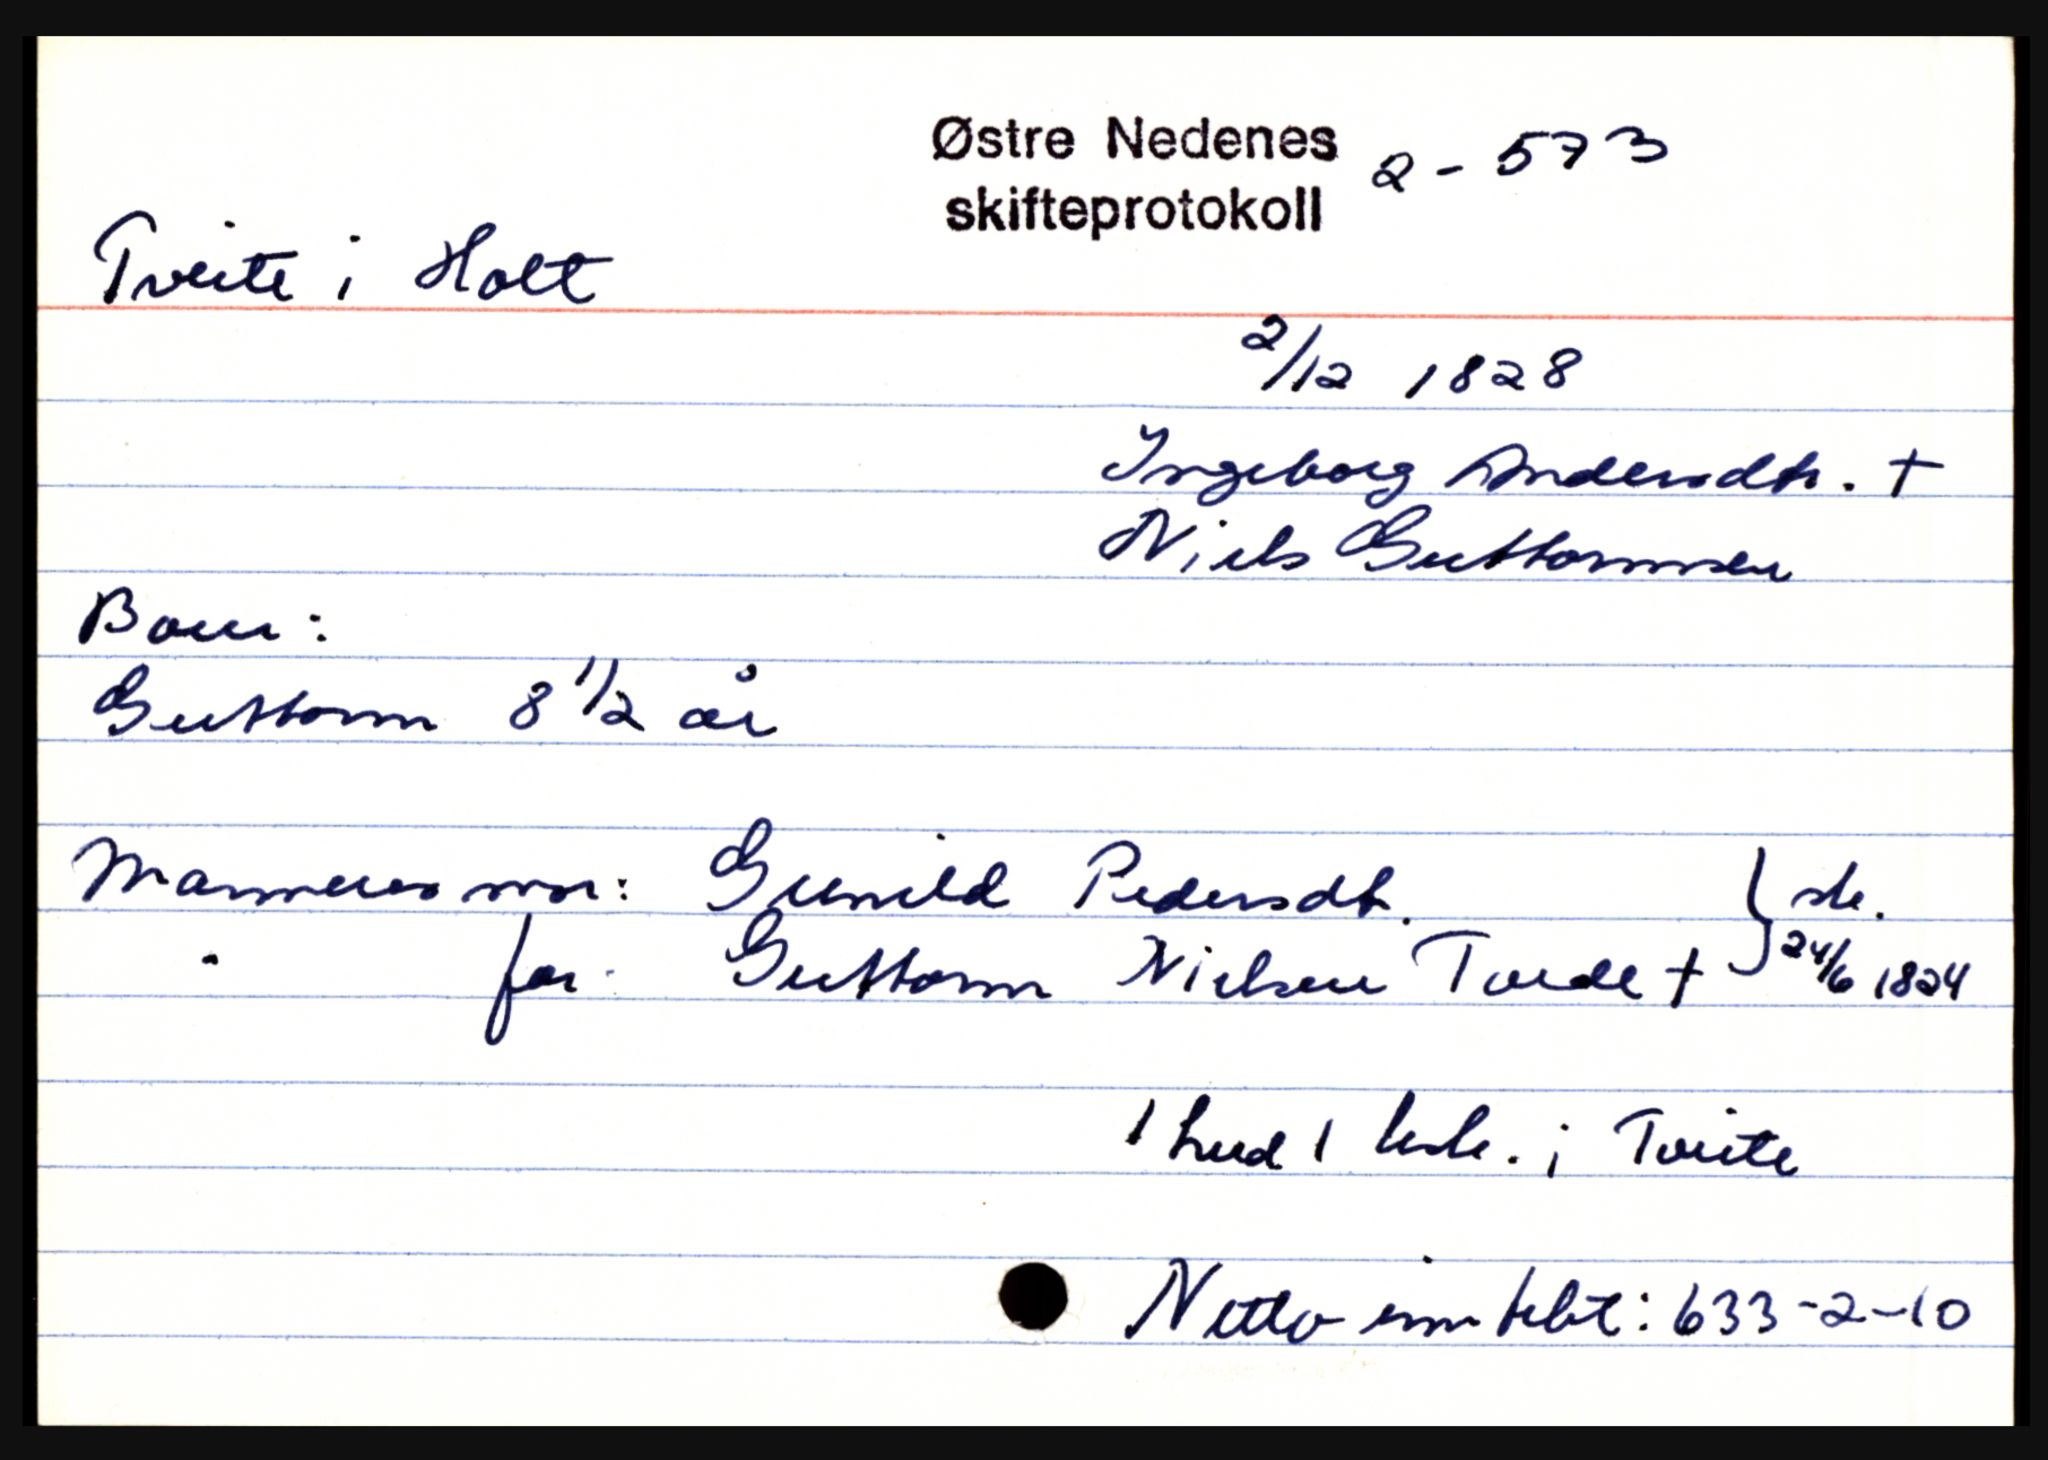 Østre Nedenes 2 - 573
skifteprotokoll
Tveite i Holt
2/12 1828
Ingeborg Andersdtr. †
Niels Guttormsen
Barn:
Guttorm 8 1/2 år
Mannens mor: Gunild Pedersdt. } sk.
" far: Guttorm Nielsen Tvede † 24/6 1824
1 hud 1 i Tveite
Netto inntekt: 633-2-10